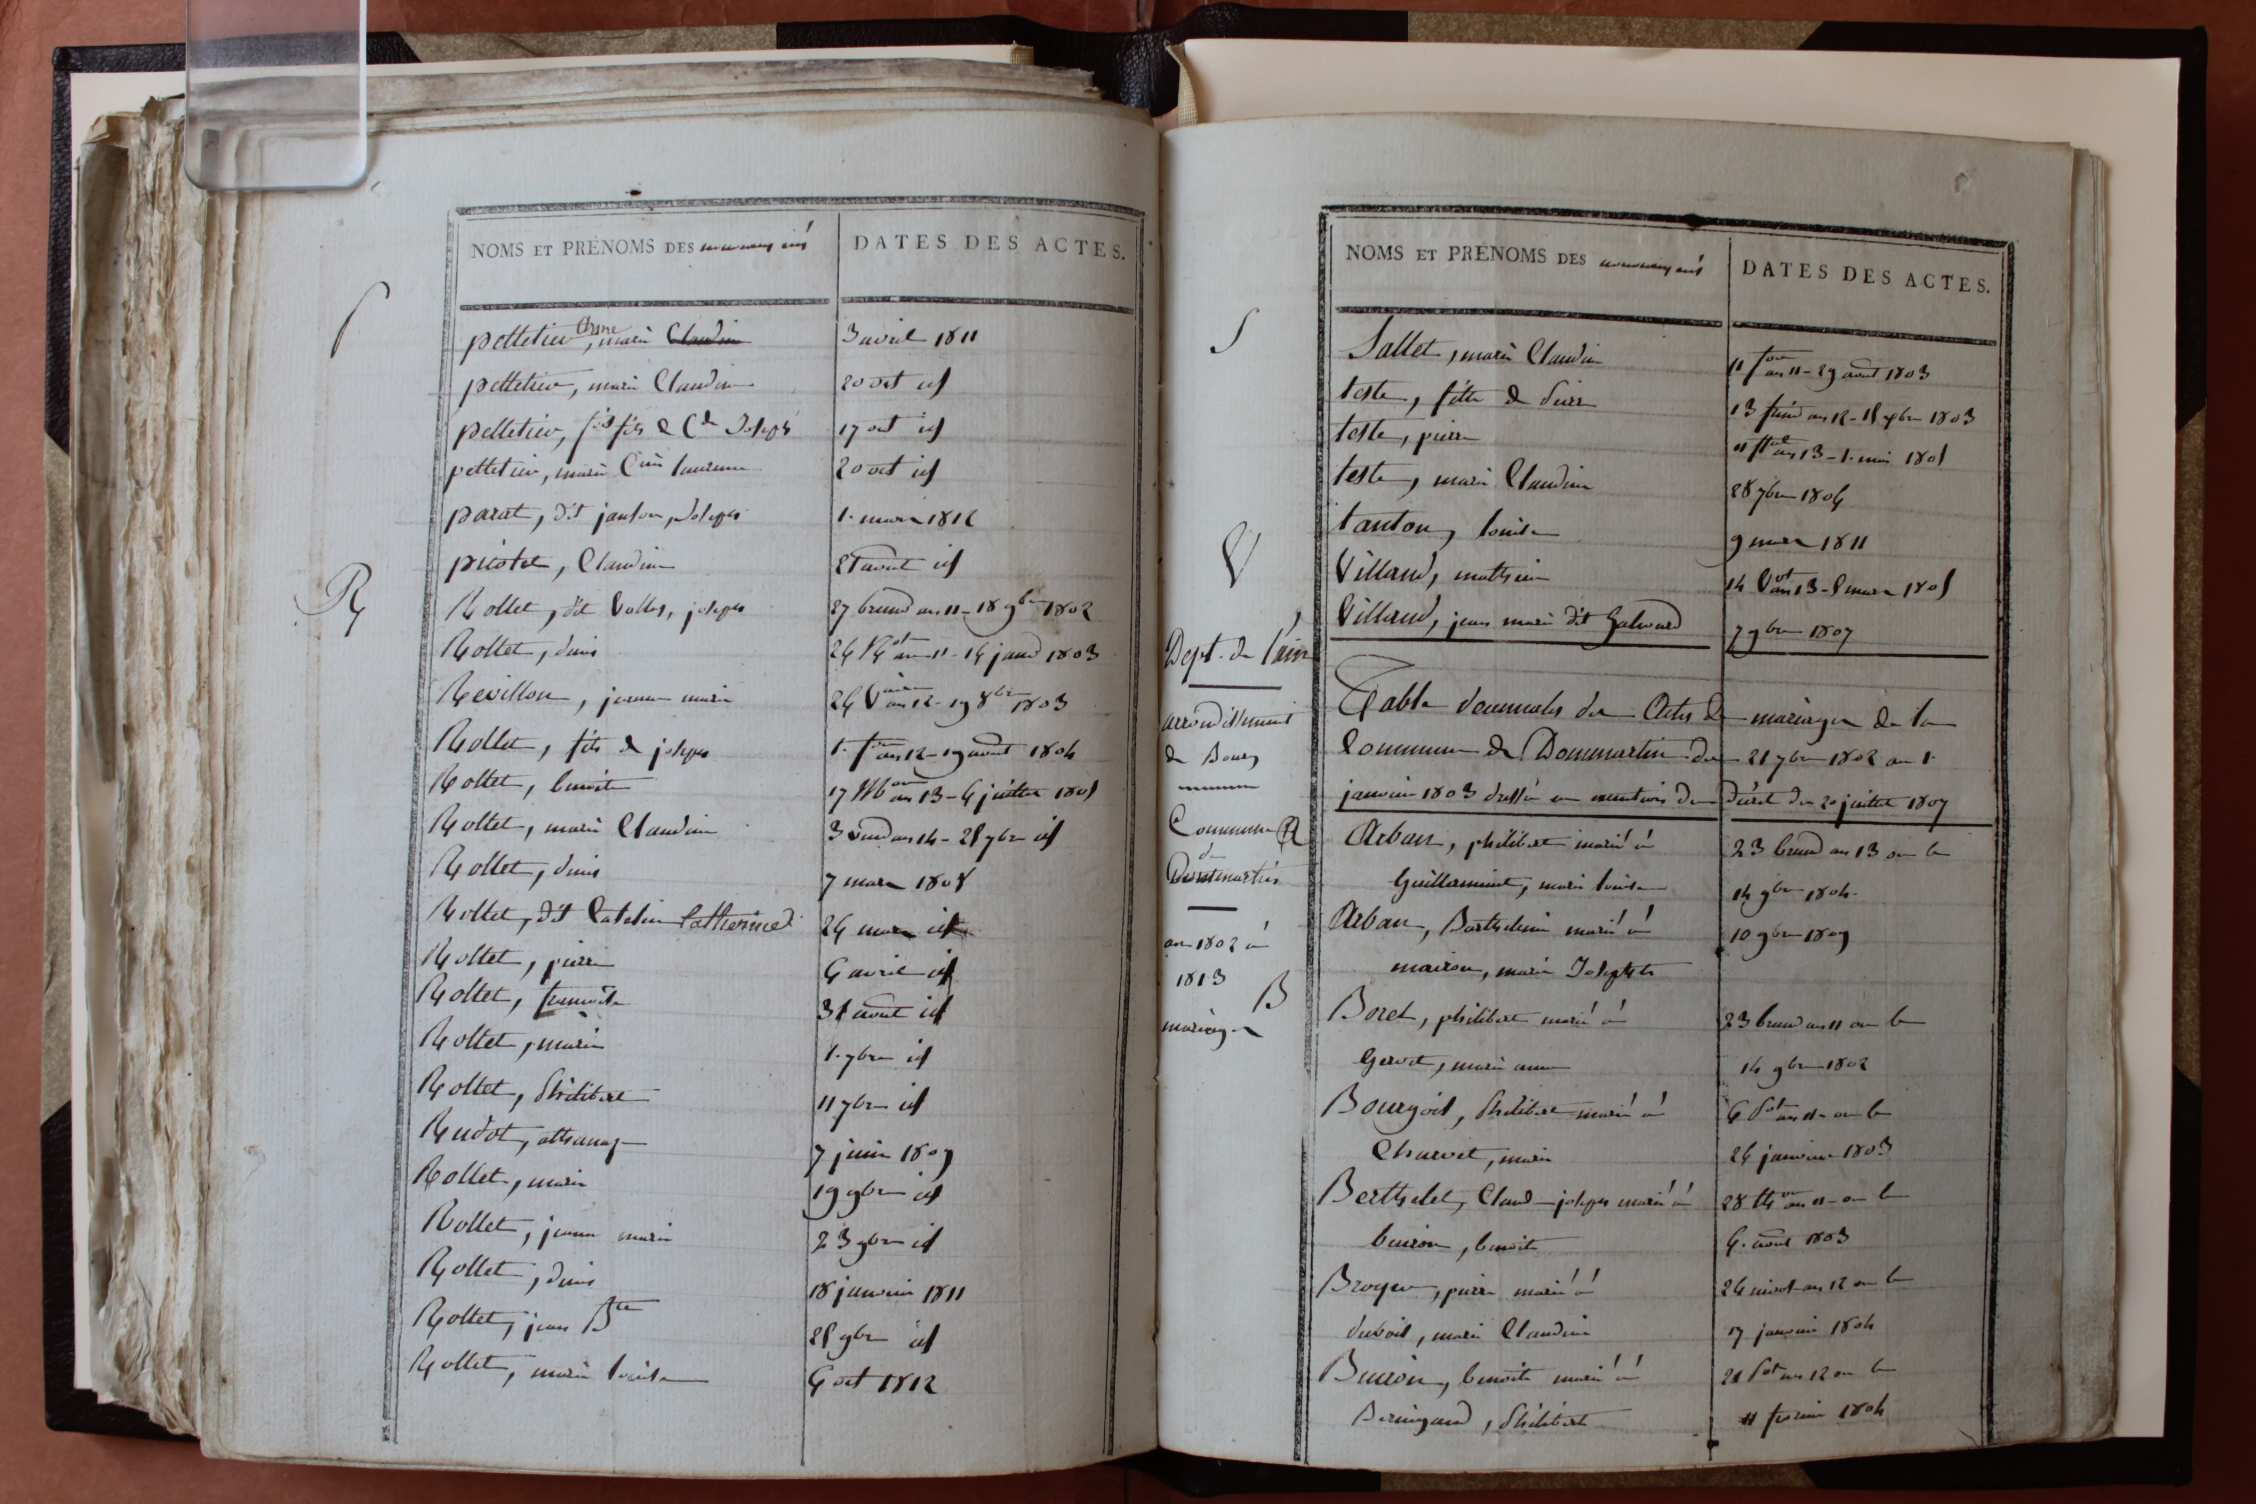 NOMS ET PRÉNOMS DES nouveaux nés
DATES DES ACTES.
P
pelletier, marie Claudine Anne
3 avril 1811
pelletier, marie Claudine
20 oct id
pelletier, fils de Cde Joseph
17 oct id
pelletier, marie laurence
20 oct id
parat, dit janton, Joseph
1. mars 1812
picotet, Claudine
août id
R
Rollet, dit Collet, joseph
27 brum an 11 - 18 9bre 1802
Rollet, denis
24 an 11 - 14 janv 1803
Revillon, jeanne marie
24 an 12 - 19 8bre 1803
Rollet, fils de joseph
1. an 12 - 19 août 1804
Rollet, benoite
17 an 13 - 6 juillet 1805
Rollet, marie Claudine
3 vend an 14 - 25 7bre id
Rollet, denis
7 mars 1808
Rollet, dit Catelin Catherine
24 mars id
Rollet, pierre
6 avril id
Rollet, francoise
31 août id
Rollet, marie
1. 7bre id
Rollet, Philibert
11 7bre id
Rudot, athanase
7 juin 1809
Rollet, marie
19 9bre id
Rollet, jeanne marie
23 9bre id
Rollet, denis
18 janvier 1811
Rollet, jean Bte
25 9bre id
Rollet, marie louise
6 oct 1812
NOMS ET PRÉNOMS DES nouveaux nés
DATES DES ACTES.
S
Sallet, marie Claudine
11 an 11 - 29 août 1803
teste, fille de Pierre
13 an 12 - 1803
teste, pierre
11 an 13 - 1. mai 1805
teste, marie Claudine
28 7bre 1806
tanton, louise
9 mars 1811
V
Villard, mathieu
14 Vot an 13 - 5 mars 1805
Villard, jean marie dit Galward
7 9bre 1807
Dept. de l'ain
arrondissement
de Bourg
Commune
de
Dommartin
an 1802 à
1813
mariages
Table décennales des Actes de mariages de la
Commune de Dommartin du 21 7bre 1802 au 1.
janvier 1803 dressée en exécution du Décret du 20 juillet 1807
A
Arban, philibert marié à
23 brum an 13 ou le
Guillerminet, marie louise
14 9bre 1804
Arban, Barthelemi marié à
10 9bre 1809
mairon, marie Josephte
B
Boret, philibert marié à
23 brum an 11 ou le
Gervot, marie anne
14 9bre 1802
Bourgois, Philibert marié à
6 Pot an 11 ou le
Charvet, marie
26 janvier 1803
Berthelet, Claude joseph marié à
28 an 11 ou le
buiron, benoite
6. août 1803
Broyer, pierre marié à
26 nivot an 12 ou le
dubois, marie Claudine
17 janvier 1804
Buiron, benoite marié à
21 Pot an 12 ou le
Philibert
11 fevrier 1804